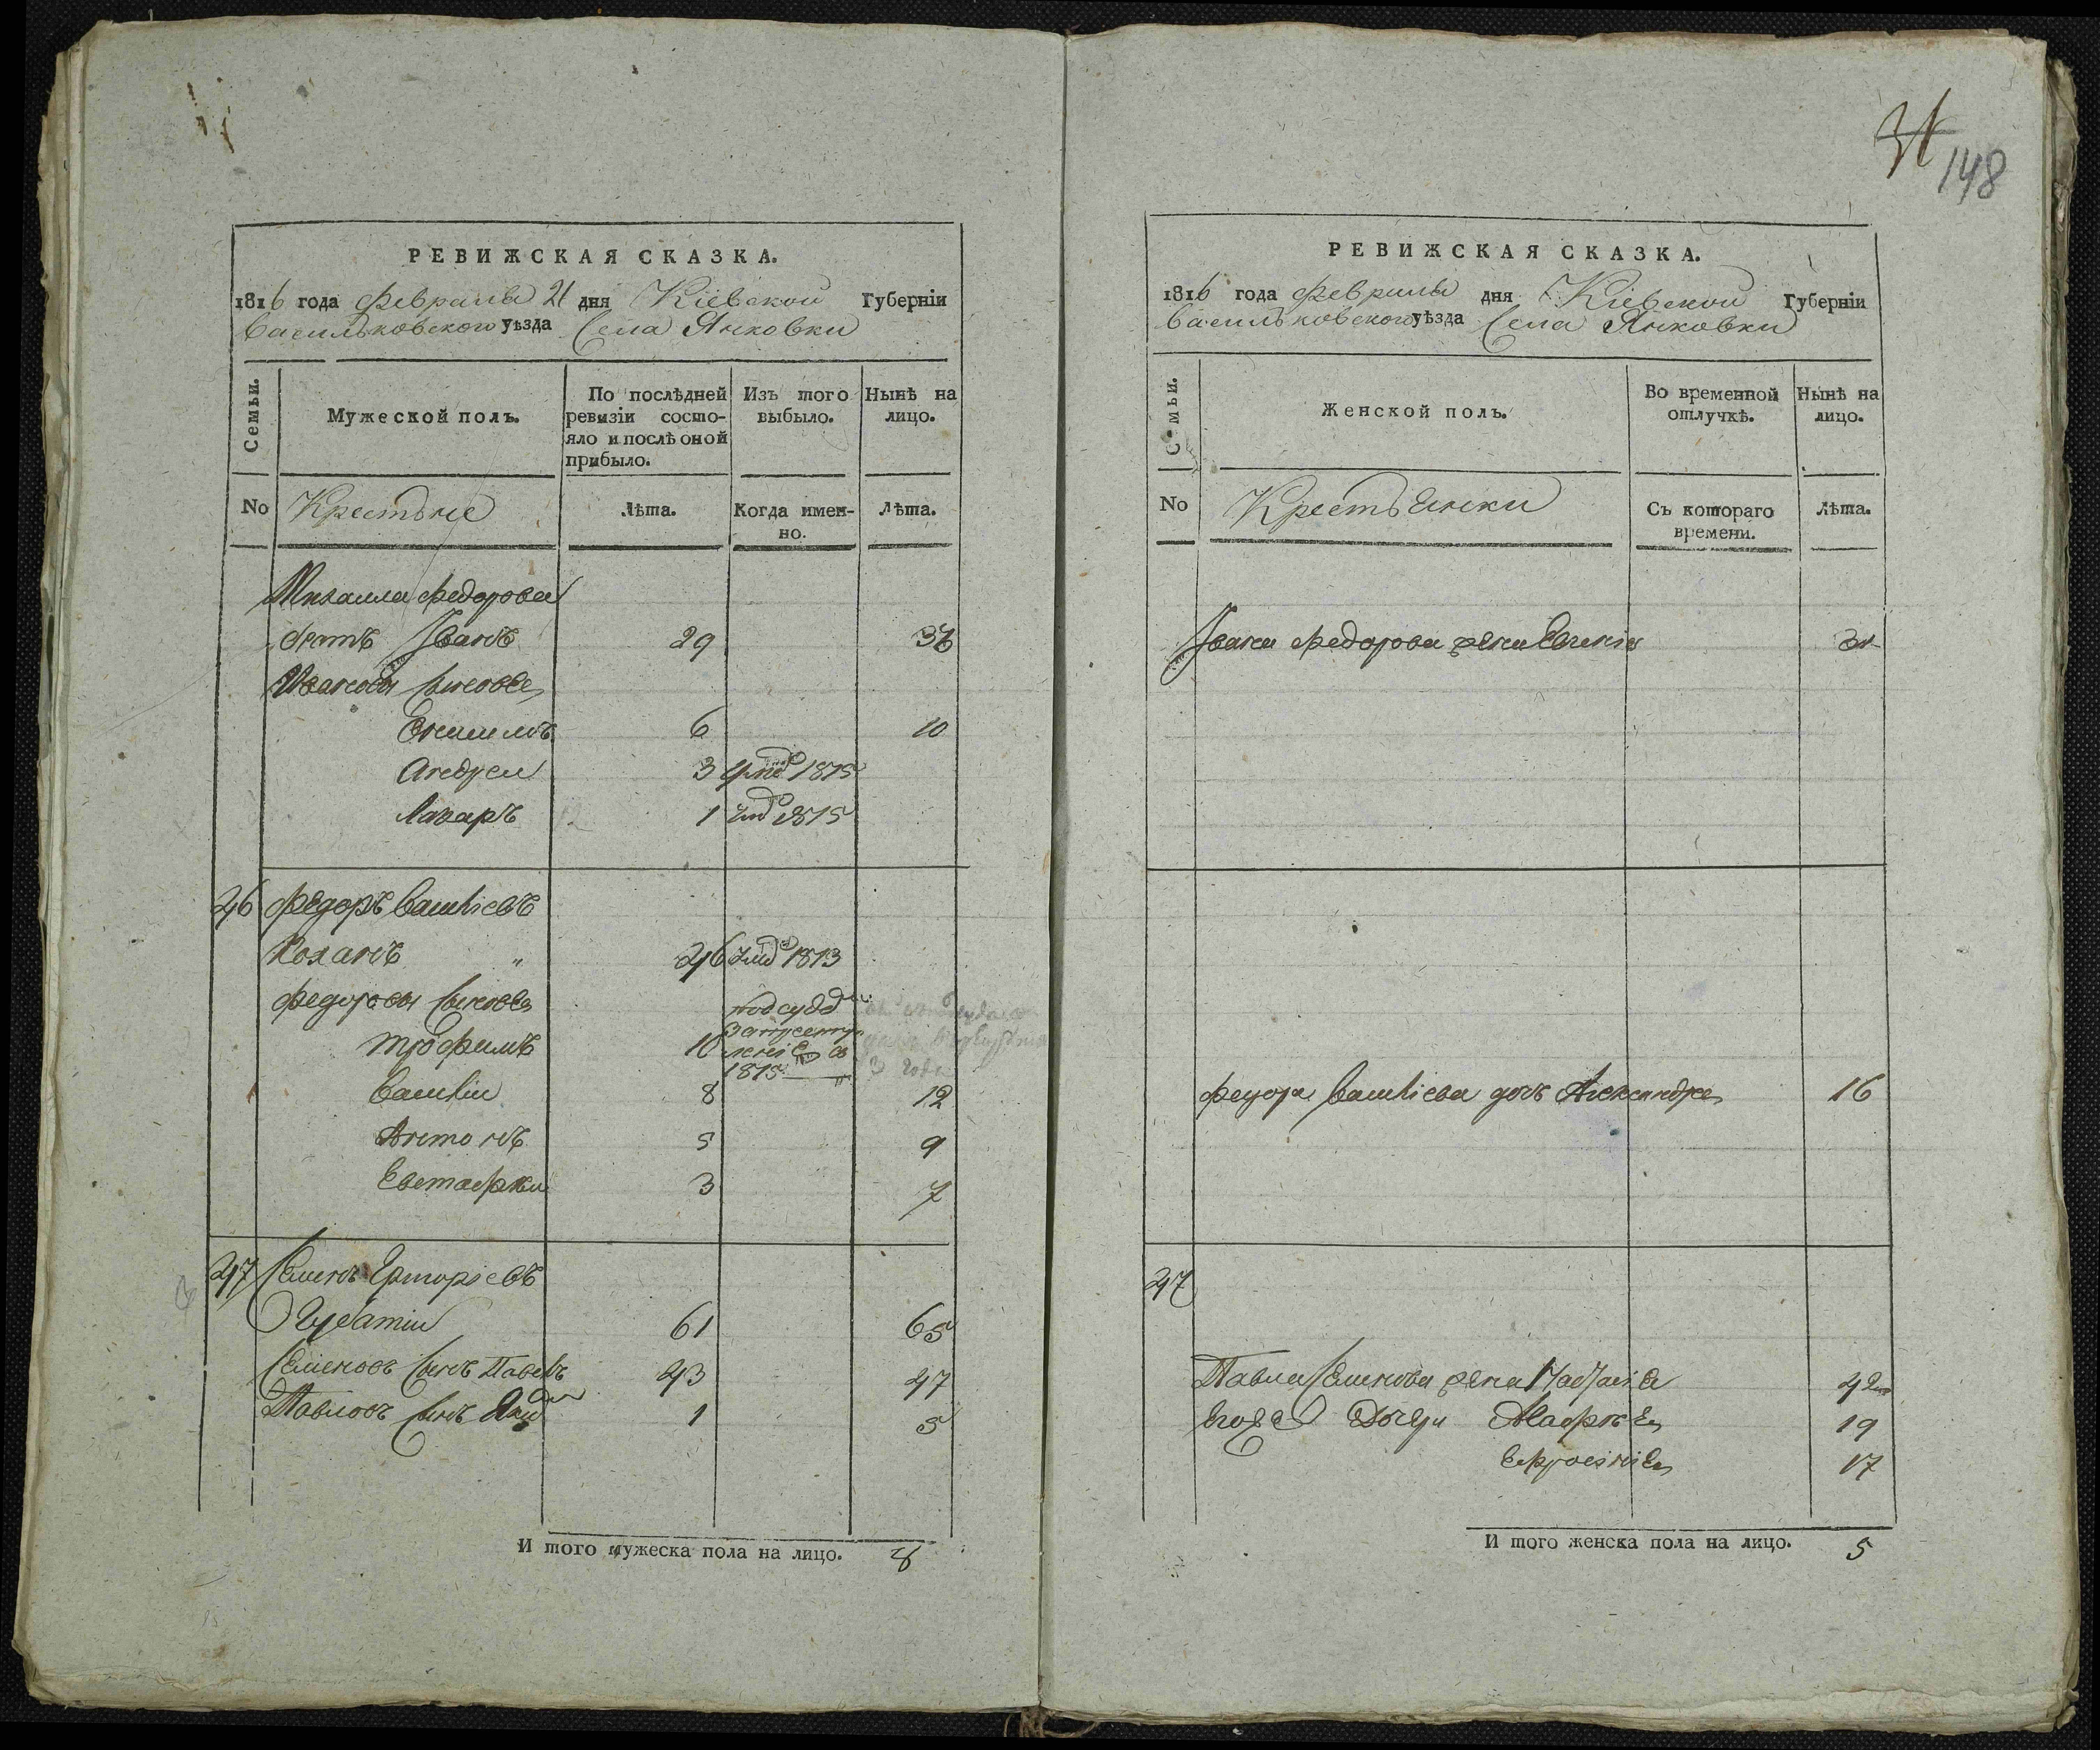 31
148
РЕВИЖСКАЯ СКАЗКА.
1816 года февраля 21 дня Кіевской Губерніи
Васильковского уѣзда Села Янковки
Семьи.
Мужеской полъ.
По послѣдней ревизіи состо-
яло и послѣ оной
прибыло.
Изъ того
выбыло.
Нынѣ на
лицо.
No
Крестьяне
Лѣта.
Когда имен-
но.
Лѣта.
Михаила Федорова
братъ Іванъ 29 33
Ивановы сыновья
6 10
Андрей 3 1815
Лазарь 1 1815
46 Федоръ Василіевъ
Козакъ 46 1813
Федоровы сыновья
подсуд
Трофимъ 10
1815
Василій 8 12
Антонъ 5 9
Евстафій 3 7
47 Семенъ Григоріевъ
Горбатій 61 65
Семеновъ сынъ Павелъ 43 47
Павловъ сынъ 1 5
И того мужеска пола на лицо. 8
РЕВИЖСКАЯ СКАЗКА.
1816 года февраля дня Кіевской Губерніи
Васильковского уѣзда Села Янковки
Семьи.
Женской полъ.
Во временной
отлучкѣ.
Нынѣ на
лицо.
No
Крестьянки
Съ котораго
времени.
Лѣта.
Івана Федорова жена
Федора Василіева дочь Александра 16
47
Павла Семенова жена 42
Його дочери Марфа 19
Ефросинія 17
И того женска пола на лицо. 5